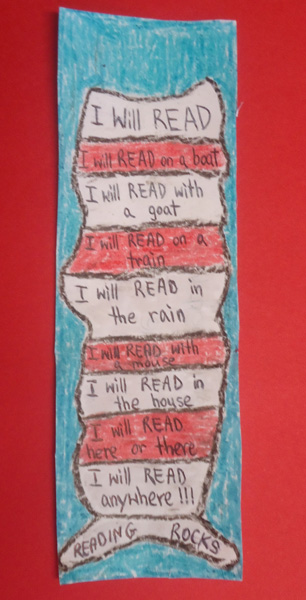 I Will READ
I will READ on a boat
I will READ with
a goat
I will READ on a
train
I will READ in
the rain
I will READ with
a mouse
I will READ in
the house
I will READ
here or there
I will READ
anywhere!!!
READING ROCKS